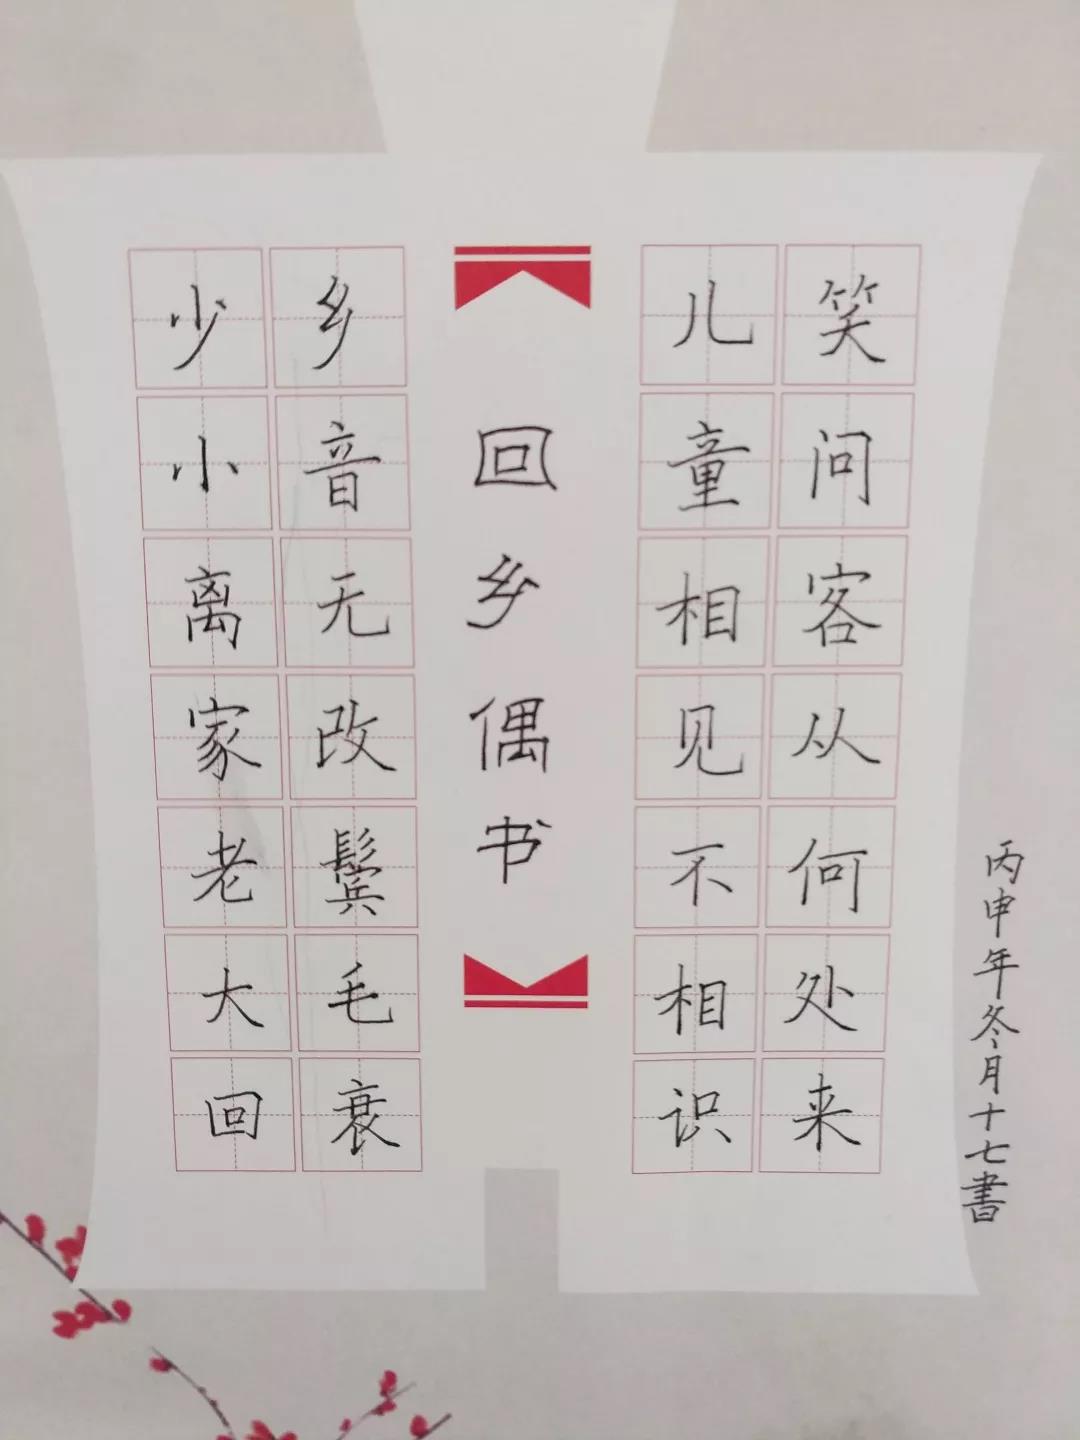 少小离家老大回
乡音无改鬓毛衰
回乡偶书
儿童相见不相识
笑问客从何处来
丙申年冬月十七書